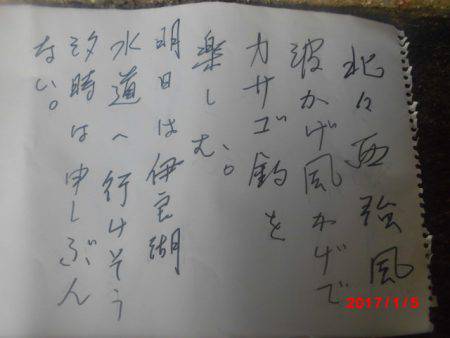 北々西強風
波かげ風かげで
カサゴ釣を
楽しむ。
明日は伊豆湖
水道へ行けそう
汐時は申しぶん
ない。
2017/1/5